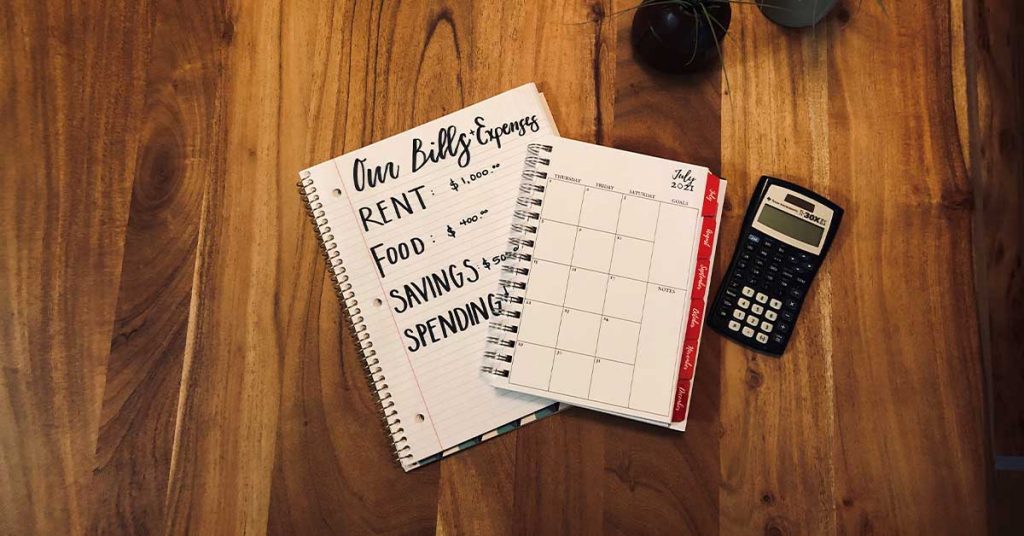 Our Bills + Expenses
RENT: $1,000.00
FOOD: $400.00
SAVINGS: $50
SPENDING:
July
2021
THURSDAY FRIDAY SATURDAY GOALS
NOTES
July
August
September
October
November
December
TEXAS INSTRUMENTS
30X